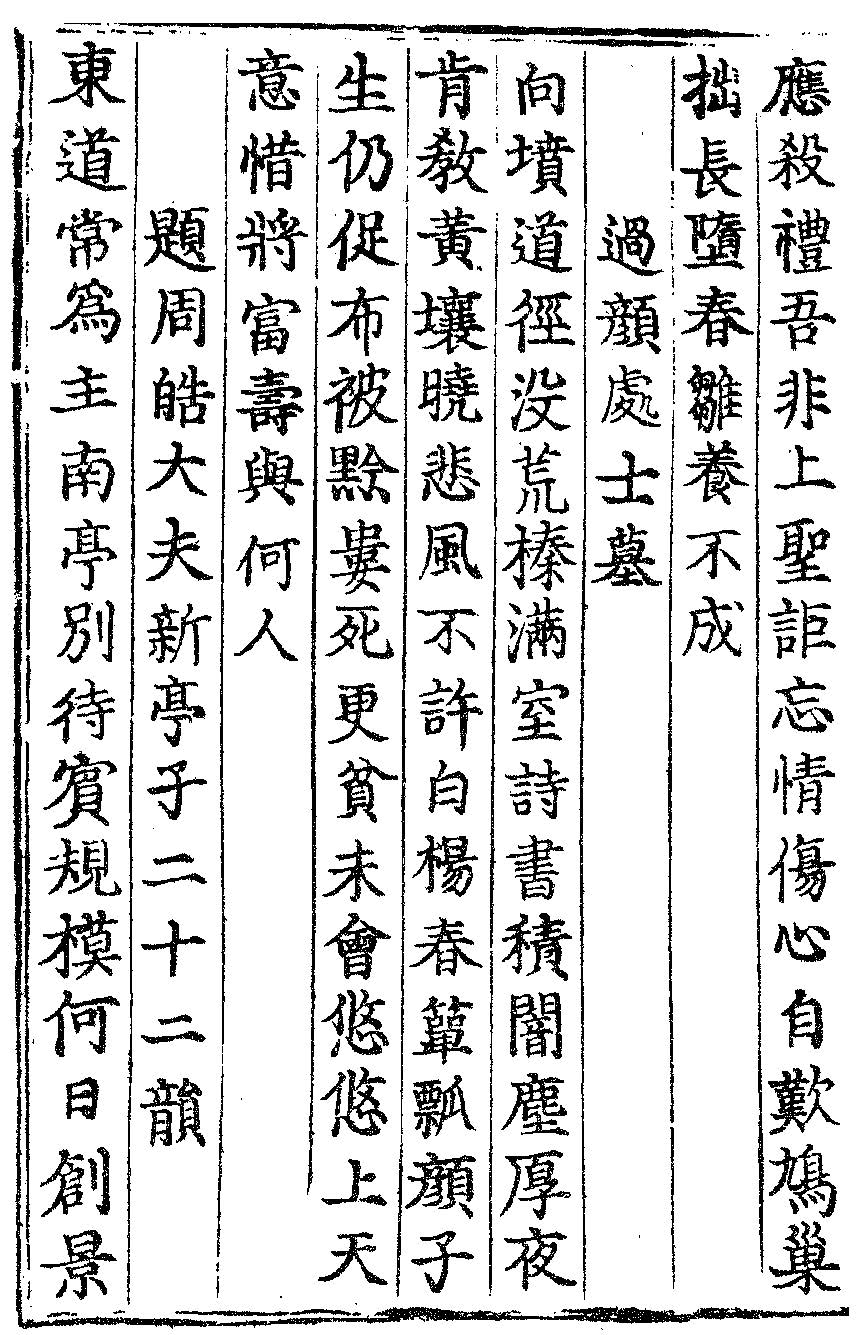 應殺禮吾非上聖詎忘情傷心自歎鳩巢
拙長墮春雛養不成
過顔處士墓
向墳道徑没荒榛滿室詩書積闇塵厚夜
肯教黄壤曉悲風不許白楊春簞瓢顔子
生仍促布被黔婁死更貧未會悠悠上天
意惜將富壽與何人
題周皓大夫新亭子二十二韻
東道常爲主南亭别待賓規模何日創景